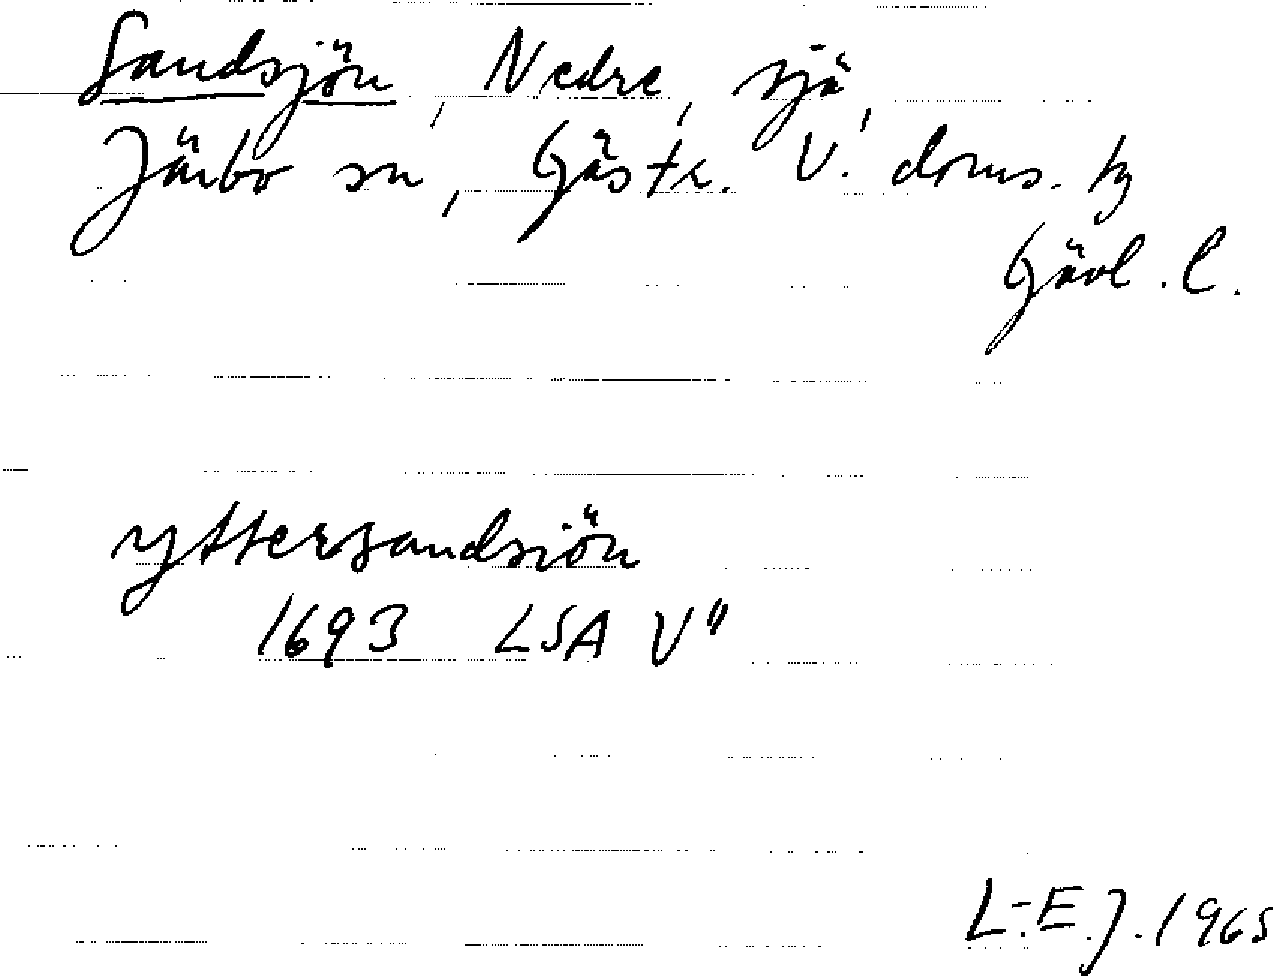 Sandsjön, Nedre, sjö,
Järbo sn, Gästr. V. doms. hg
Gävl. l.
yttersandsiön
1693 LSA V"
L.-E.J. 1965